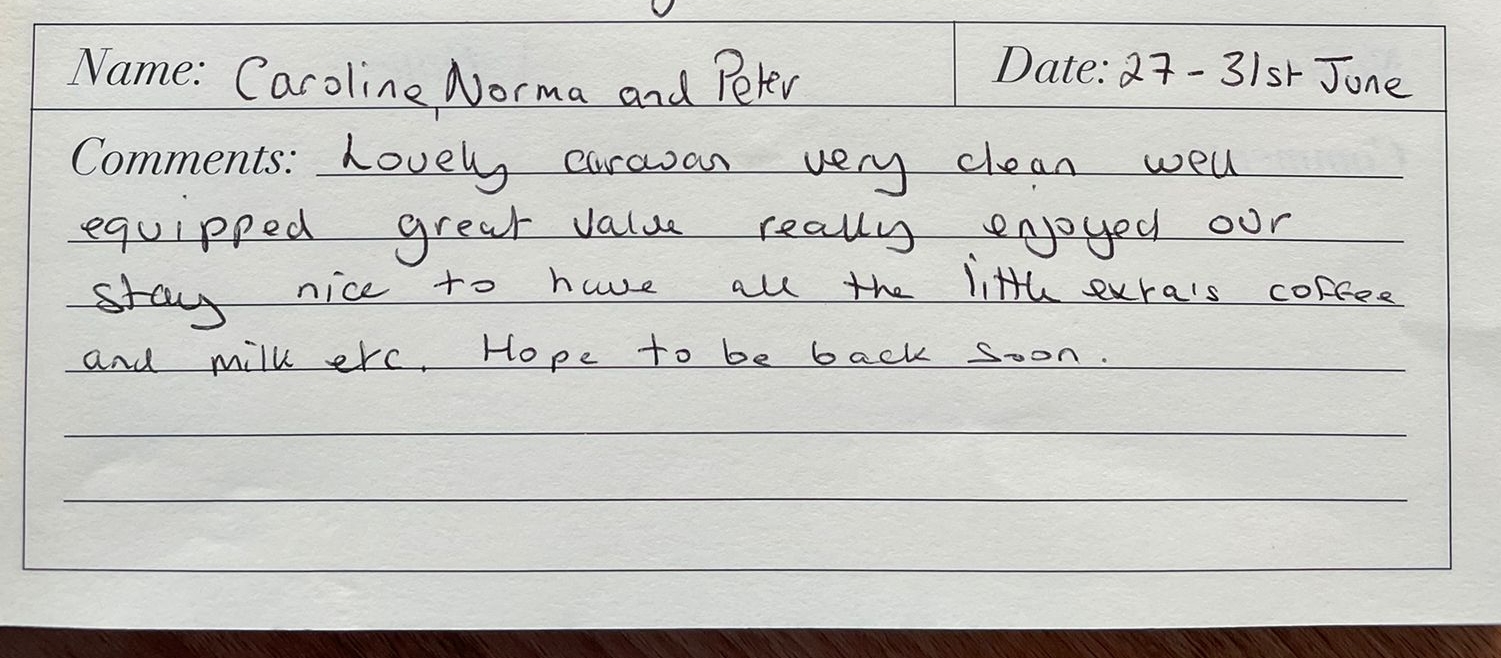 Name: Caroline, Norma and Peter Date: 27 - 31st June
Comments: Lovely caravan very clean well
equipped great value really enjoyed our
stay nice to have all the little exra's coffee
and milk etc. Hope to be back soon.